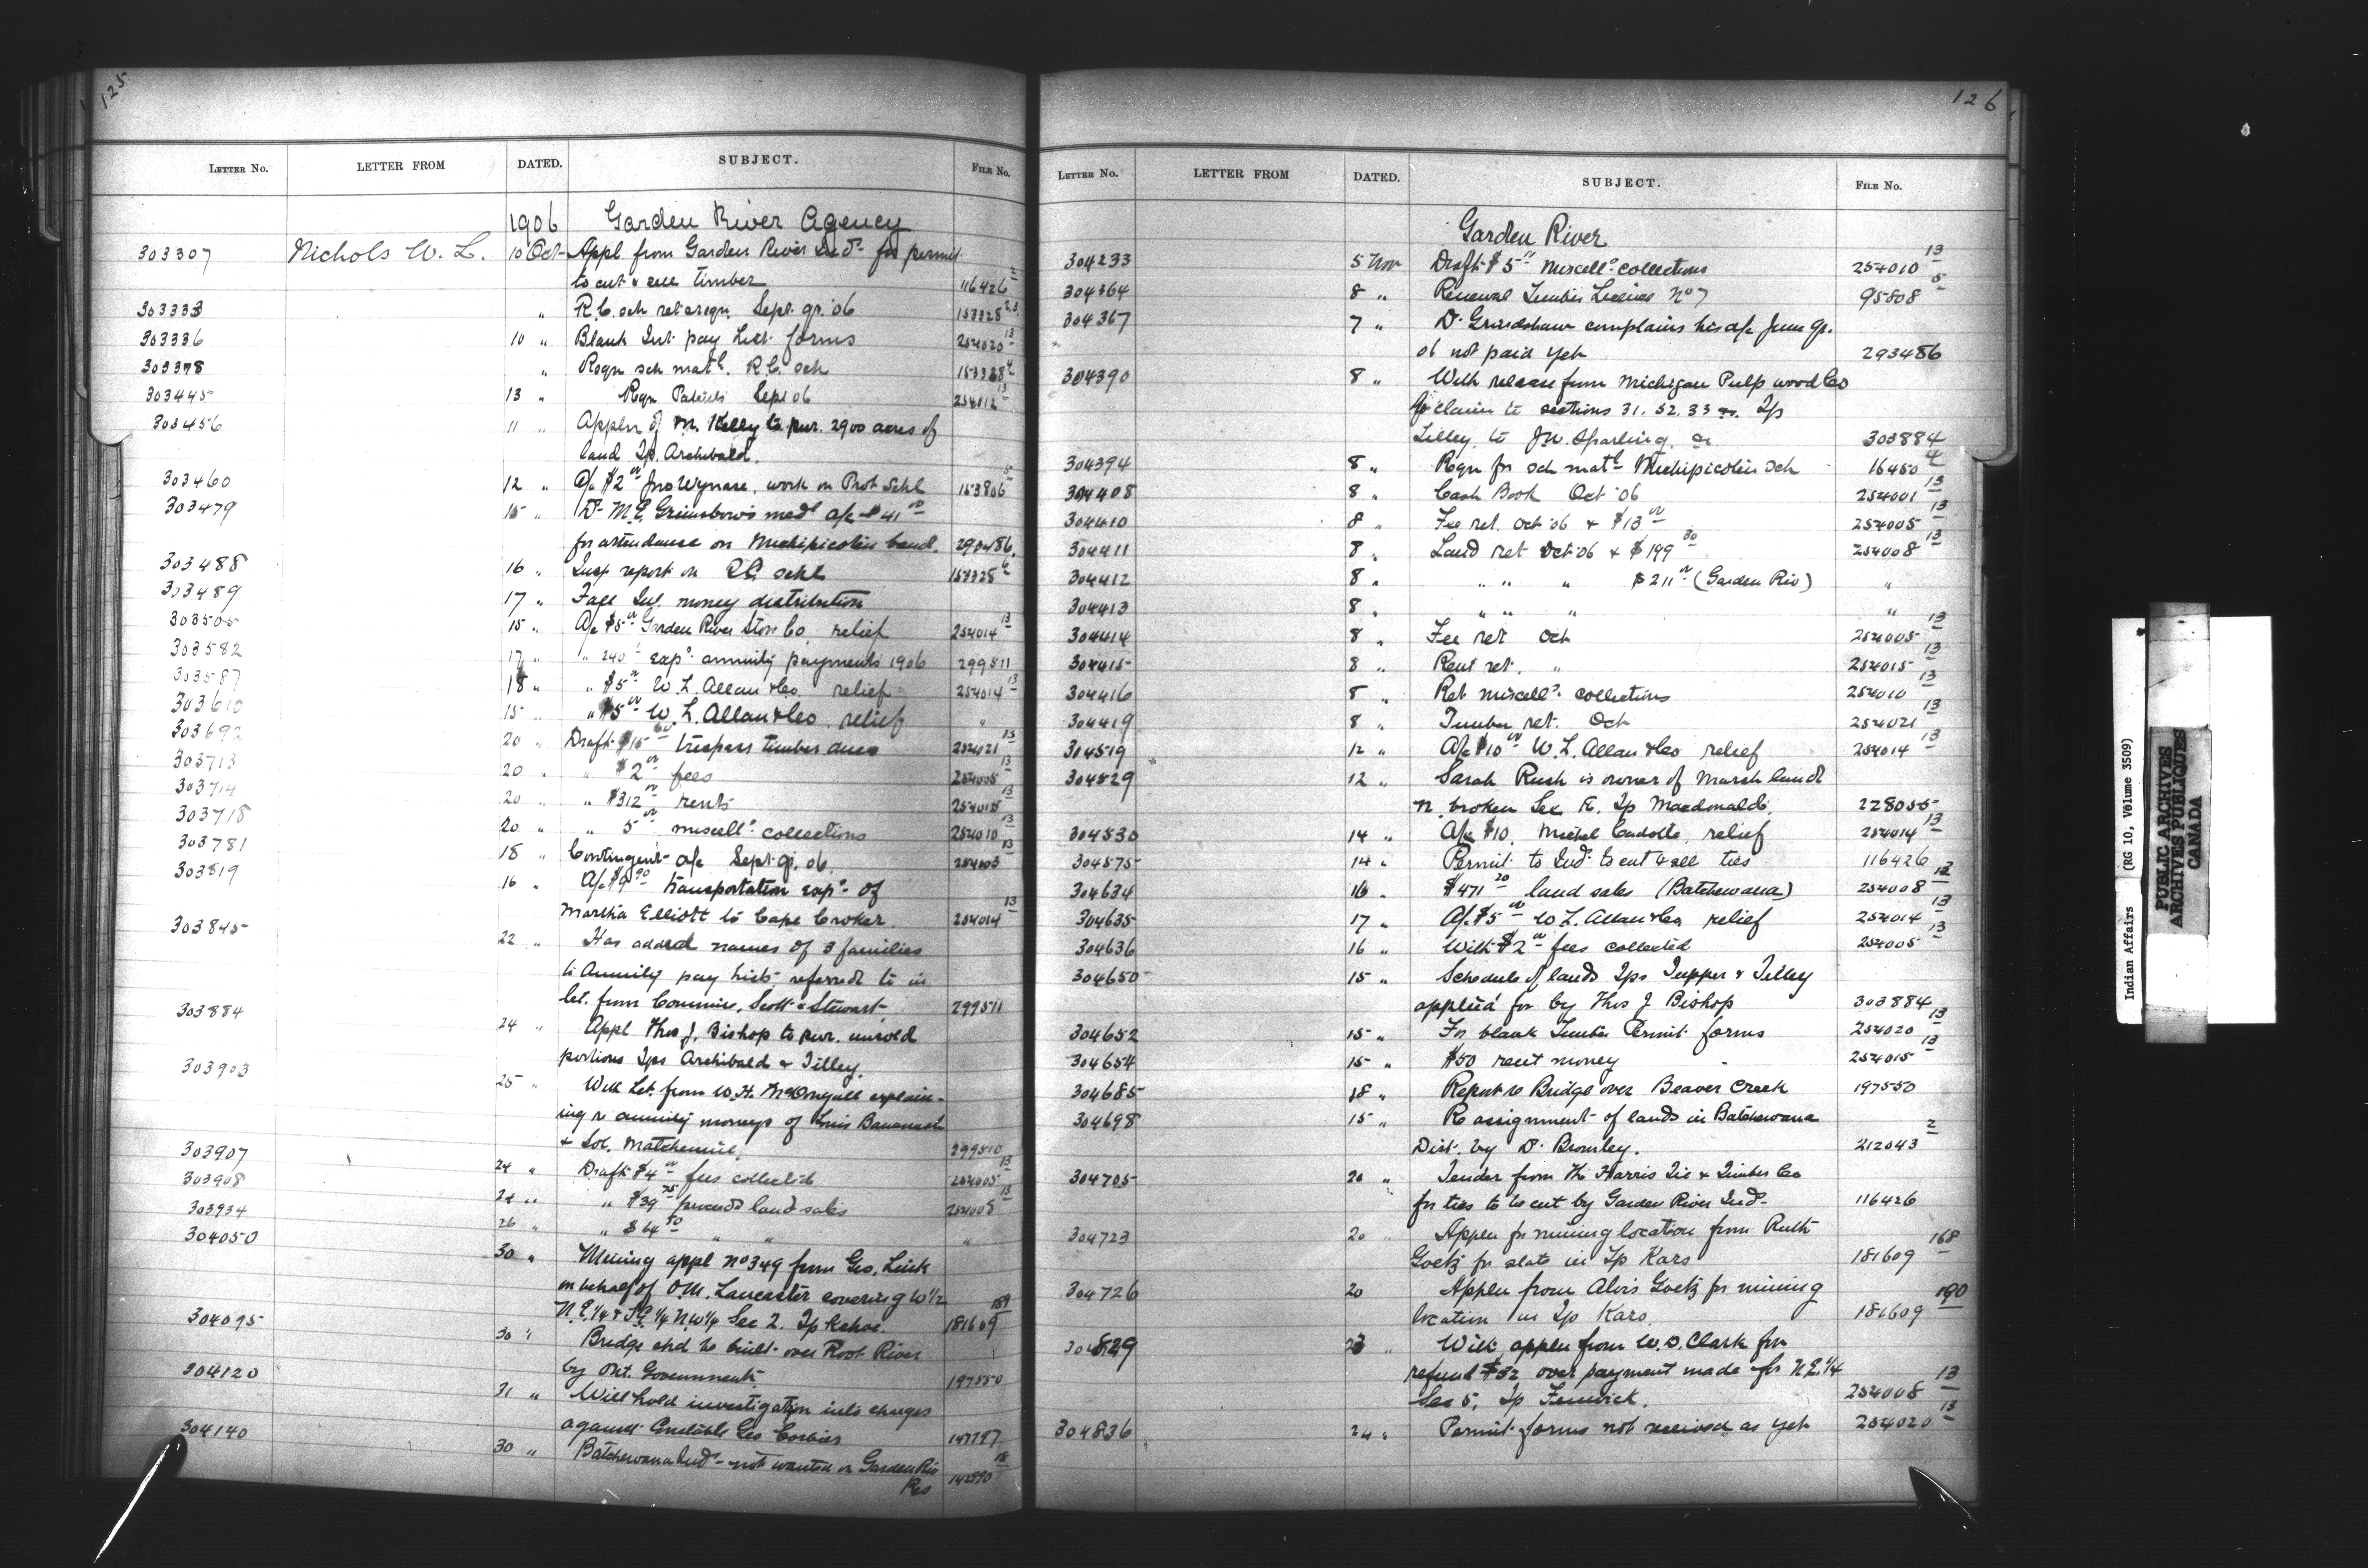 125
LETTER NO. LETTER FROM DATED. SUBJECT. FILE NO.
1906 Garden River Agency
303307 Nichols W. L. 10 Oct Appl. from Garden River Inds for permit
to cut & sell timber 116426 2
303333 " R.C. sch ret & reqn. Sept. qr. '06 153328 2.3
303336 10 " Blank Int. pay List forms 254020 13
303378 " Reqn sch matl. R.C. sch 153328 4
303445 13 " Reqn Sept 06 254012 13
303456 11 " Appln of M. Kelly to pur. 2900 acres of
land Tp. Archibald.
303460 12 " A/c $2 00 Jno Wynase, work on Prot Schl 153806 5
303479 15 " Dr M.E. a/c $41 00
for attendance on Michipicoten band. 290486.
303488 16 " Insp report on R.C. schl 153328 6
303489 17 " Fall Int. money distribution
303505 15 " A/c $5 00 Garden River Store Co. relief 254014 13
303582 17 " " 240 exps. annuity payments 1906 299511
303587 18 " " $5 00 W. L. Allan & Co. relief 254014 13
303610 15 " " $5 00 W. L. Allan & Co. relief "
303692 20 " Draft $15 00 trespass timber dues 254021 13
303713 20 " " $2 00 fees 254005 13
303714 20 " " $312 00 rents 254015 13
303718 20 " " 5 00 miscells. collections 254010 13
303781 18 " Contingent a/c Sept. qr. 06. 254003 13
303819 16 " A/c $9 90 transportation exps. of
Martha Elliott to Cape Croker. 254014 13
303845 22 " Has added names of 3 families
to Annuity pay lists, referred to in
let. from Commrs. Scott & Stewart 299511
303884 24 " Appl Thos J. Bishop to pur. unsold
portions Tps Archibald & Tilley.
303903 25 " With Let. from W. H. McDougall explain-
ing re annuity moneys of Louis
& Sol. 299510
303907 24 " Draft $4 00 fees collected 254005 13
303908 24 " " $39 75 proceeds land sales 254008 13
303934 26 " " $64 50 " " "
304050 30 " Mining appl No 349 from Geo. Link
on behalf of O.M. Lancaster covering W 1/2
N.E. 1/4 & S.E. 1/4 N.W 1/4 Sec 2. Tp Kehoe. 181609 189
304095 30 " Bridge shd be built over Root River
by Ont. Government. 197550
304120 31 " Will hold investigation into charges
against Constable Geo Corbier 147797
304140 30 " Batchewana Inds not wanted on Garden Riv
Res 142590 18
126
LETTER NO. LETTER FROM DATED. SUBJECT. FILE NO.
Garden River
304233 5 Nov Draft $5 00 miscells. collections 254010 13
304364 8 " Renewal Timber License No 7 95808 5
304367 7 " Dr. Grindshaw complains his a/c June qr.
06 not paid yet 293486
304390 8 " With release from Michigan Pulp wood Co
for claim to sections 31. 32. 33 Tp
Tilley, to J.W. Sparling. 303884
304394 8 " Reqn for sch matl Michipicoten sch 16450 4
304408 8 " Cash Book Oct '06 254001 13
304410 8 " Fee ret. Oct '06 & $13 00 254005 13
304411 8 " Land ret Oct '06 & $199 30 254008 13
304412 8 " " " " $211 00 (Garden Riv) "
304413 8 " " " " "
304414 8 " Fee ret Oct 254005 13
304415 8 " Rent ret. " 254015 13
304416 8 " Ret miscells. collections 254010 13
304419 8 " Timber ret. Oct 254021 13
304519 12 " A/c $10 00 W. L. Allan & Co relief 254014 13
304529 12 " Sarah Rush is owner of Marsh land
N. broken Sec E. Tp Macdonald. 228055
304530 14 " A/c $10. Michel Cadotte, relief 254014 13
304575 14 " Permit to Inds to cut & sell ties 116426
304634 16 " $471 20 land sales (Batchewana) 254008 13
304635 17 " A/c $5 00 W. L. Allan & Co, relief 254014 13
304636 16 " With $2 00 fees collected 254005 13
304650 15 " Schedule of lands Tps Tupper & Tilley
applied for by Thos J Bishop 303884
304652 15 " For blank Timber Permit forms 254020 13
304654 15 " $50 rent money 254015 13
304685 18 " Report re Bridge over Beaver Creek 197550
304698 15 " Re assignment of lands in Batchewana
Dist. by D. Bromley. 212043 2
304705 20 " Tender from The Harris Tie & Timber Co
for ties to be cut by Garden River Inds 116426
304723 20 " Appln for mining location from Ruth
Goetz for slate in Tp Kars 181609 168
304726 20 Appln from Alois Goetz for mining
location in Tp Kars. 181609 190
304829 23 " With appln from W. D. Clark for
refund $32 over payment made for N.E. 1/4
Sec 5. Tp Fenwick. 254008 13
304836 24 " Permit forms not received as yet 254020 13
Indian Affairs (RG 10, Volume 3509)
PUBLIC ARCHIVES
ARCHIVES PUBLIQUES
CANADA